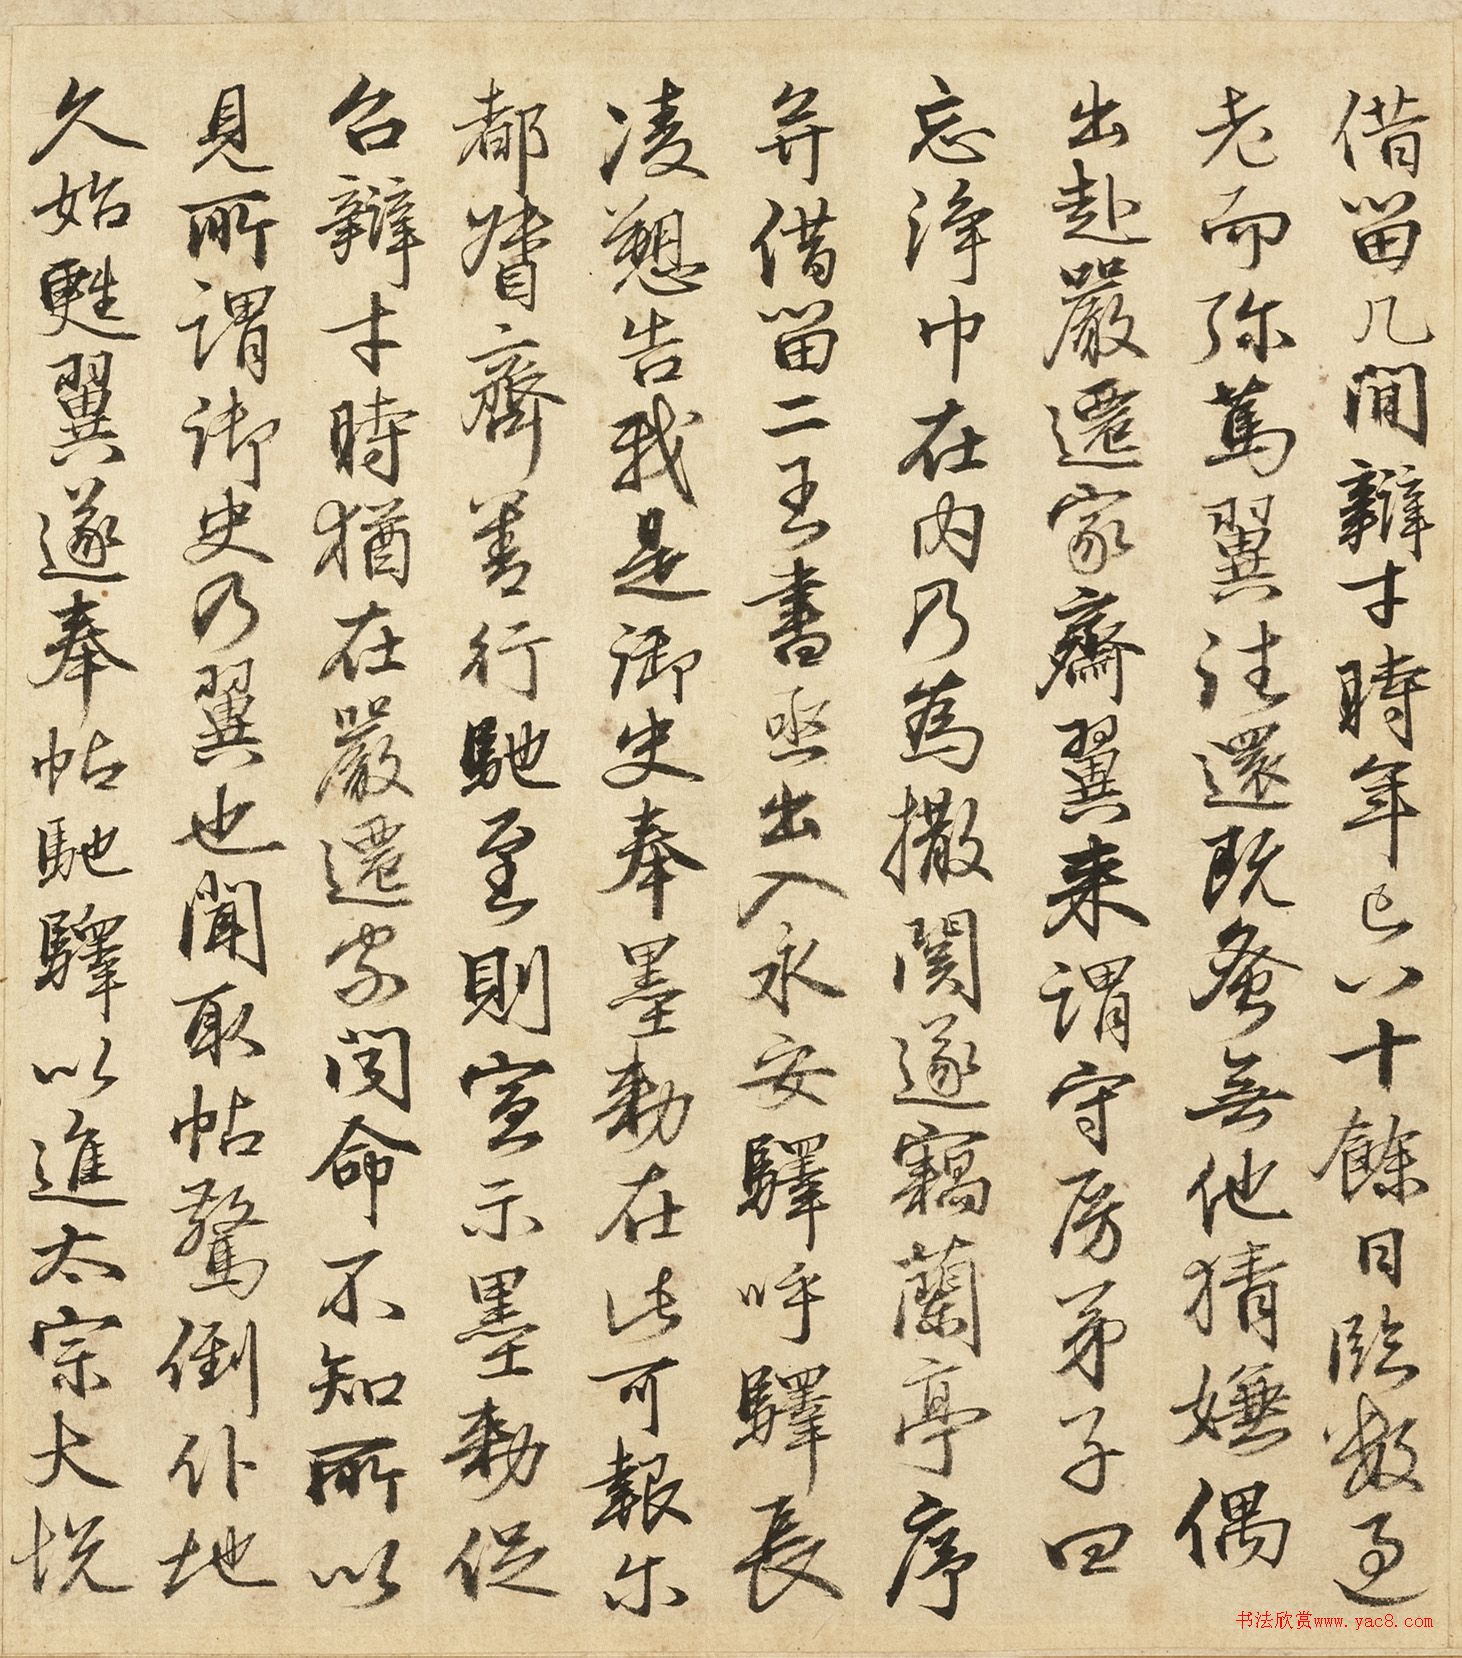 借留几間辯才時年已八十餘日臨數過
老而弥篤翼往還既密無他猜嫌偶
出赴嚴遷家齋翼来謂守房弟子曰
忘淨巾在内乃為撤関遂竊蘭亭序
并借留二王書亟出入永安驛呼驛長
凌愬告我是御史奉墨勅在此可報尔
都督齊善行馳至則宣示墨勅促
召辯才時猶在嚴遷家聞命不知所以
見所謂御史乃翼也聞取帖驚倒仆地
久始甦翼遂奉帖馳驛以進太宗大悦
书法欣赏www.yac8.com